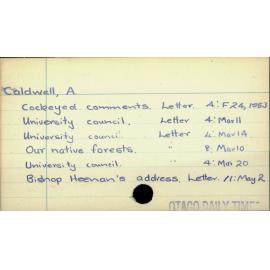 Caldwell, A.
Cockeyed comments. Letter. 4: F 24, 1953
University council. Letter 4: Mar 11
University council. Letter 4: Mar 14
Our native forests. " 8: Mar 10
University council. " 4: Mar 20
Bishop Heenan's address. Letter. 11: May 2
OTAGO DAILY TIMES